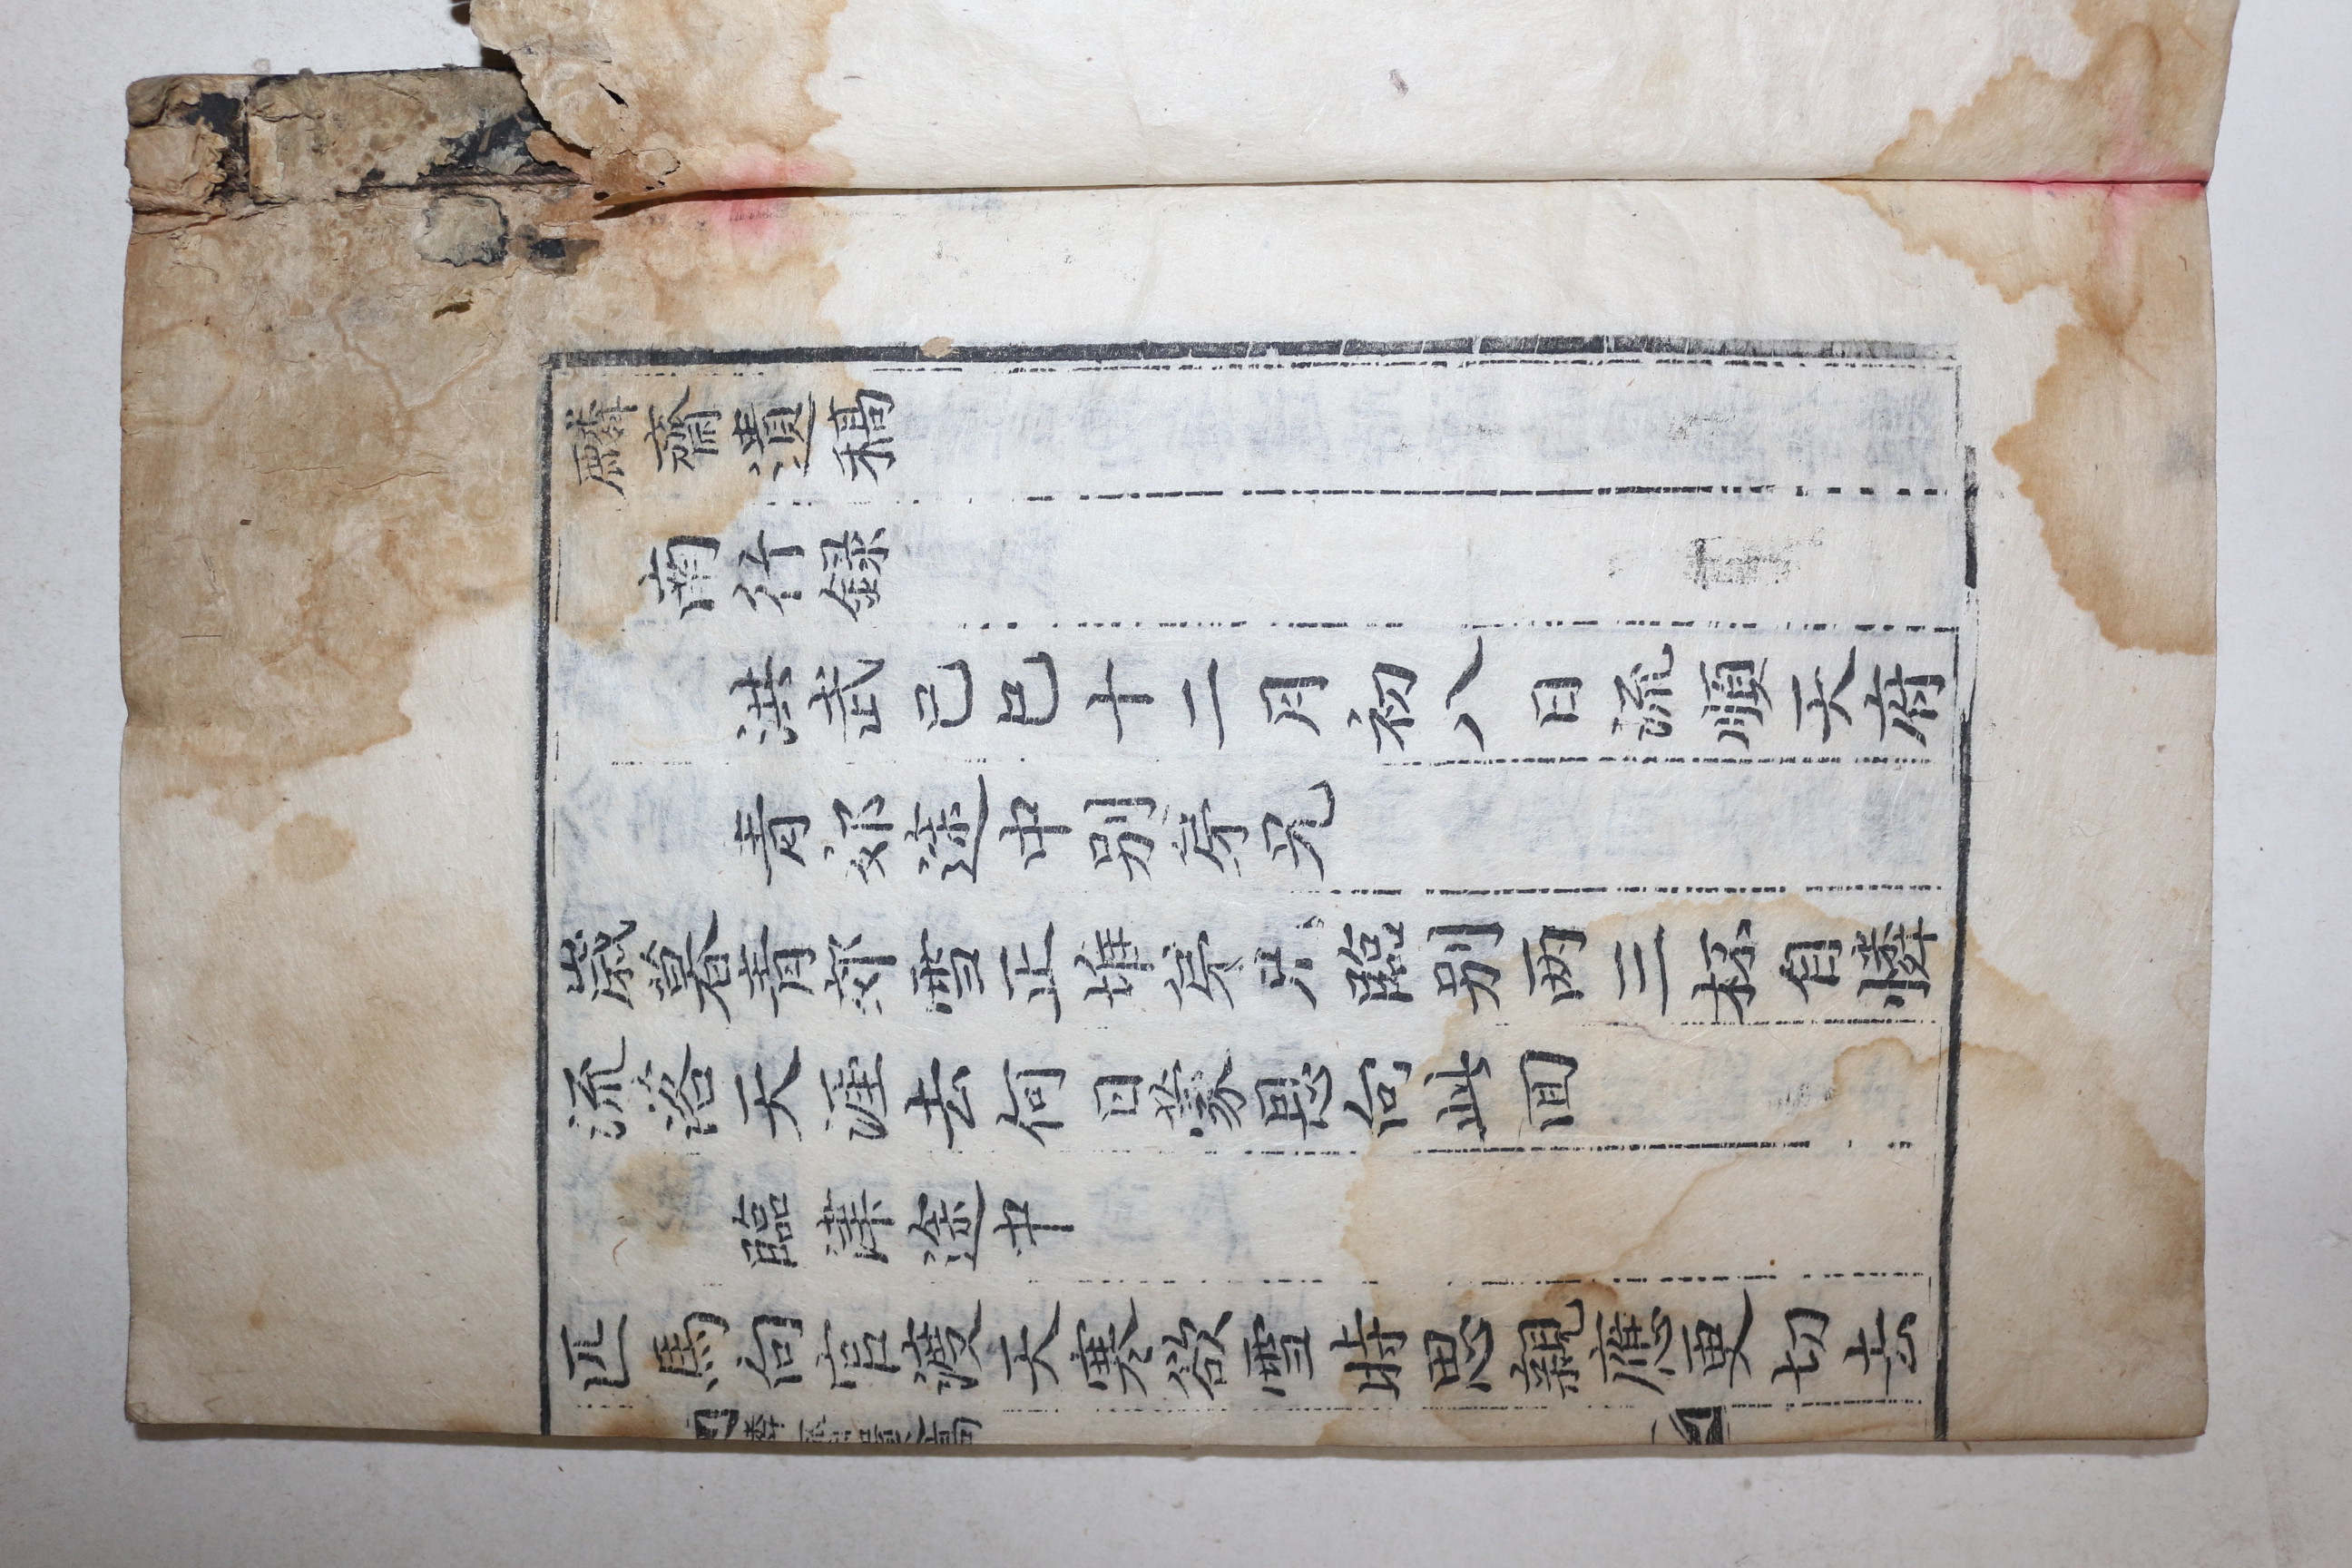 麟齋遺稿
南行録
洪武己巳十二月初八日流順天府
青郊途中别㐧兄
歳暮青郊雪正堆㐧兄臨别两三杯自憐
流落天涯去何日蒙恩向此回
臨津途中
匹馬向官渡天寒欲雪時思親應更切去
麟齋遺稿